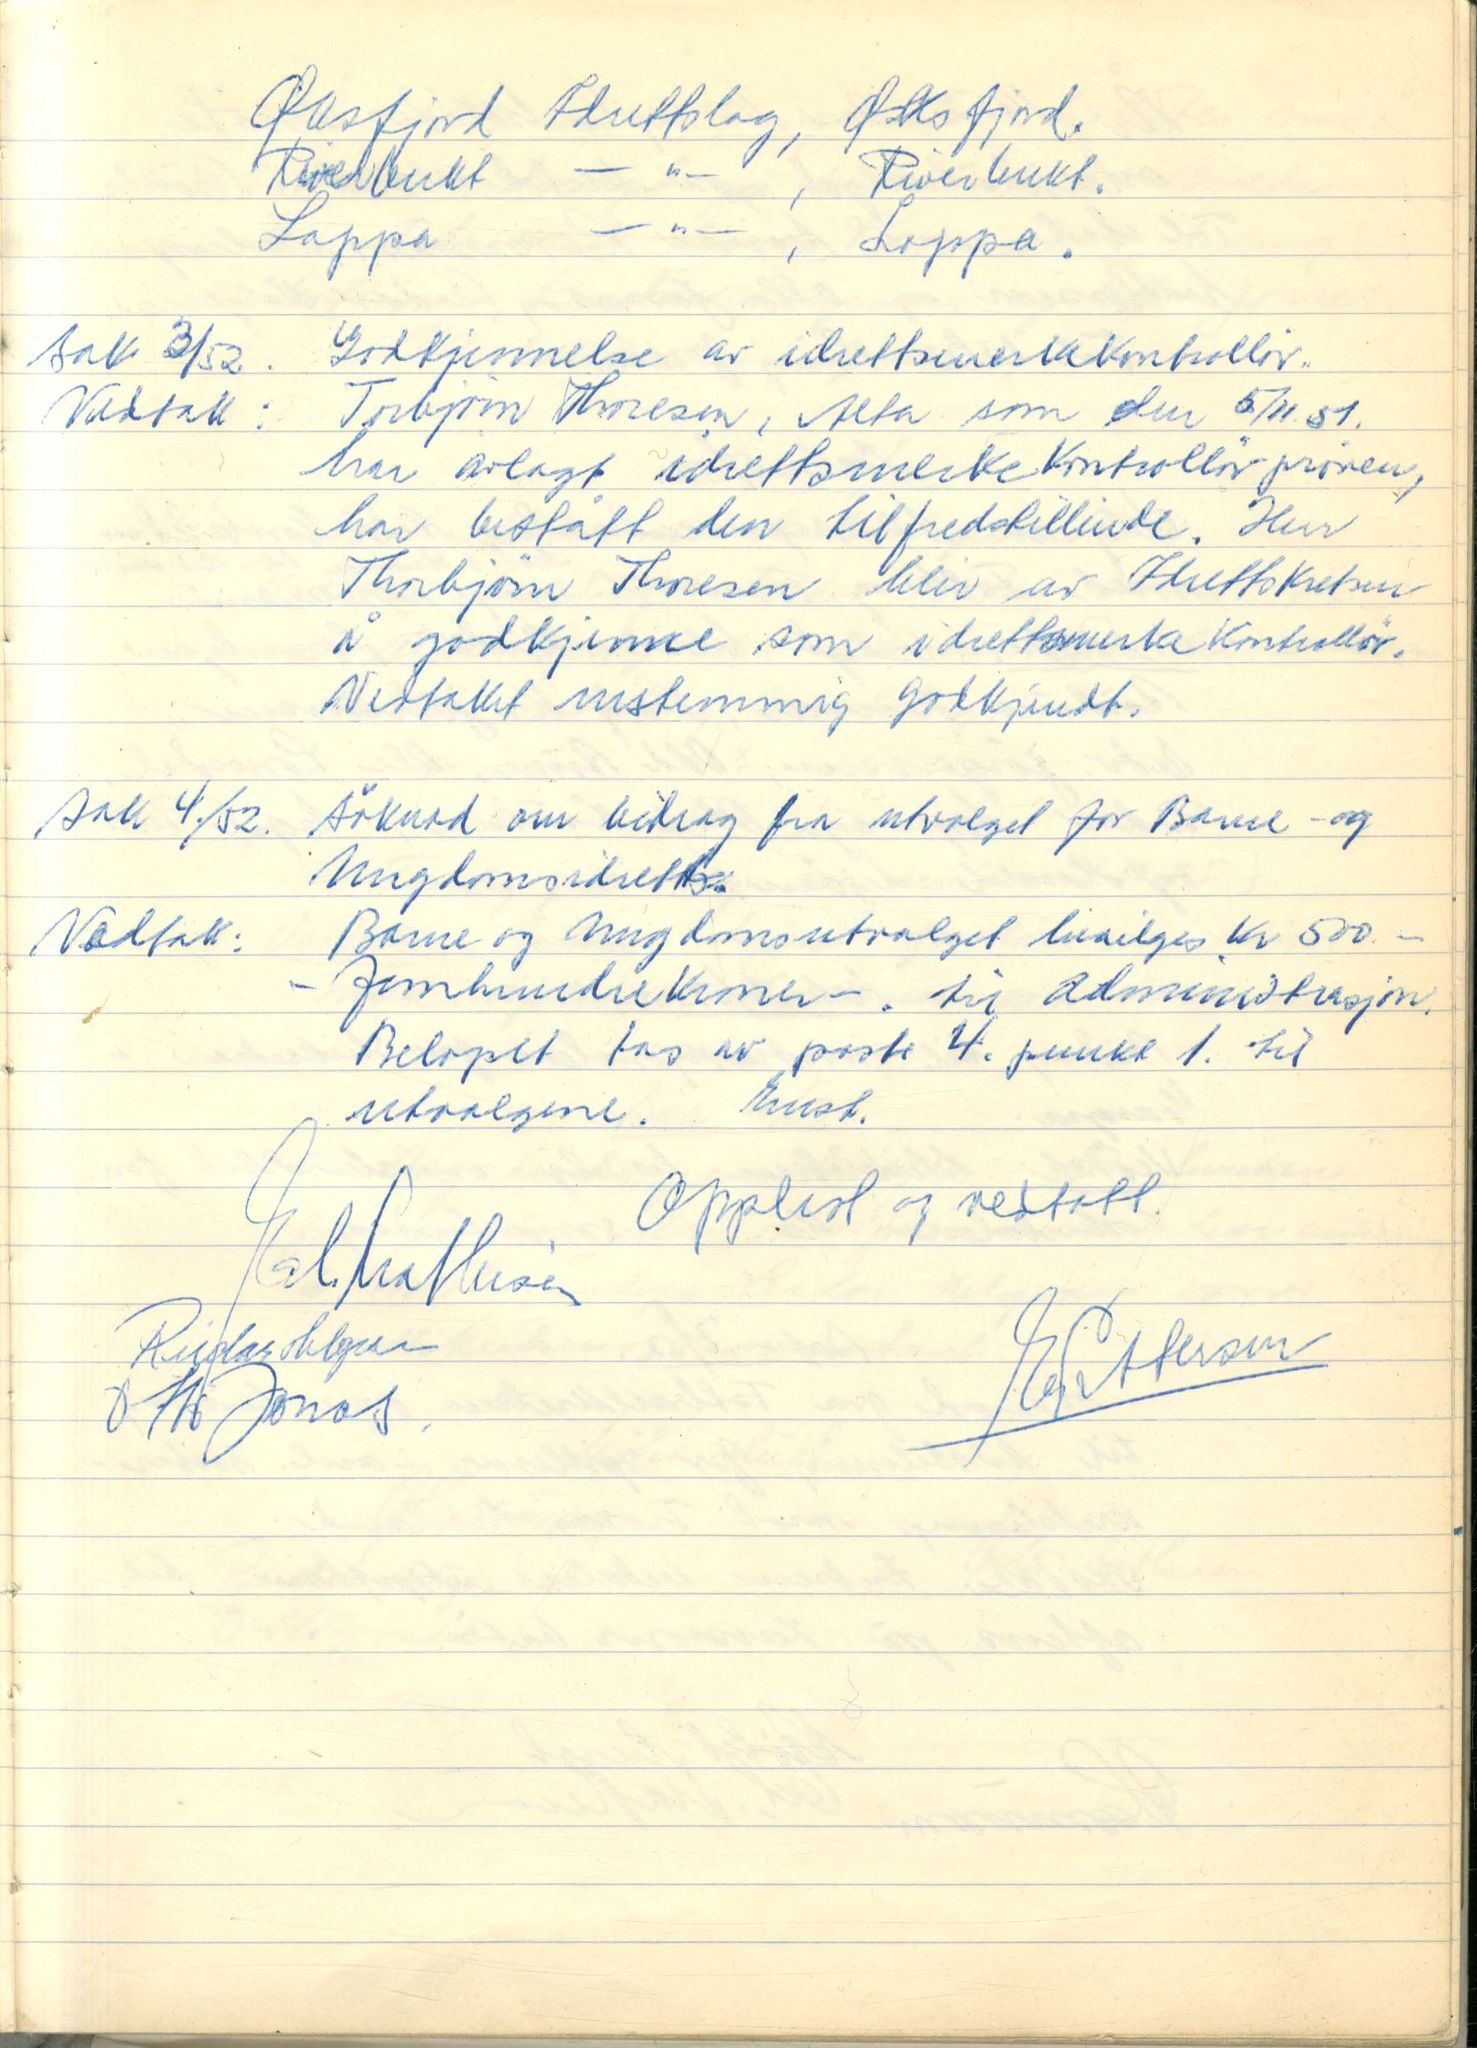 Øksfjord Idrettslag, Øksfjord.
Riverbukt — " — , Riverbukt.
Loppa — " — , Loppa.
Sak 3/52. Godkjennelse av idrettsmerkekontrollör.
Vedtak: Torbjörn Thoresen, Alta som den 5/11.51.
har avlagt idrettsmerkekontrollörpröven,
har bestått den tilfredstillende. Herr
Thorbjörn Thoresen blir av Idrettskretsen
å godkjenne som idrettsmerkekontrollör.
Vedtaket enstemmig godkjendt.
Sak 4./52. Söknad om bidrag fra utvalget for Barne - og
Ungdomsidrett.
Vedtak: Barne og Ungdomsutvalget bevilges kr 500.-
- Femhundrekroner -. til administrasjon.
Belöpet tas av post 4. punkt 1. til
utvalgene. Enst.
Opplest og vedtatt.
Mathisen
Reidar
Otto Jonas.
Pettersen